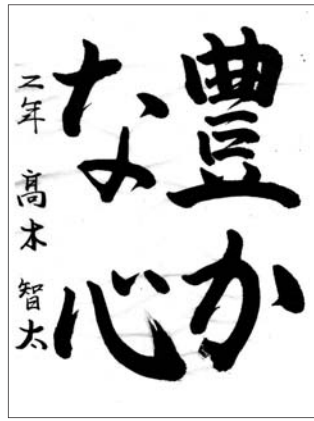 豊か
な心
二年 髙木 智太